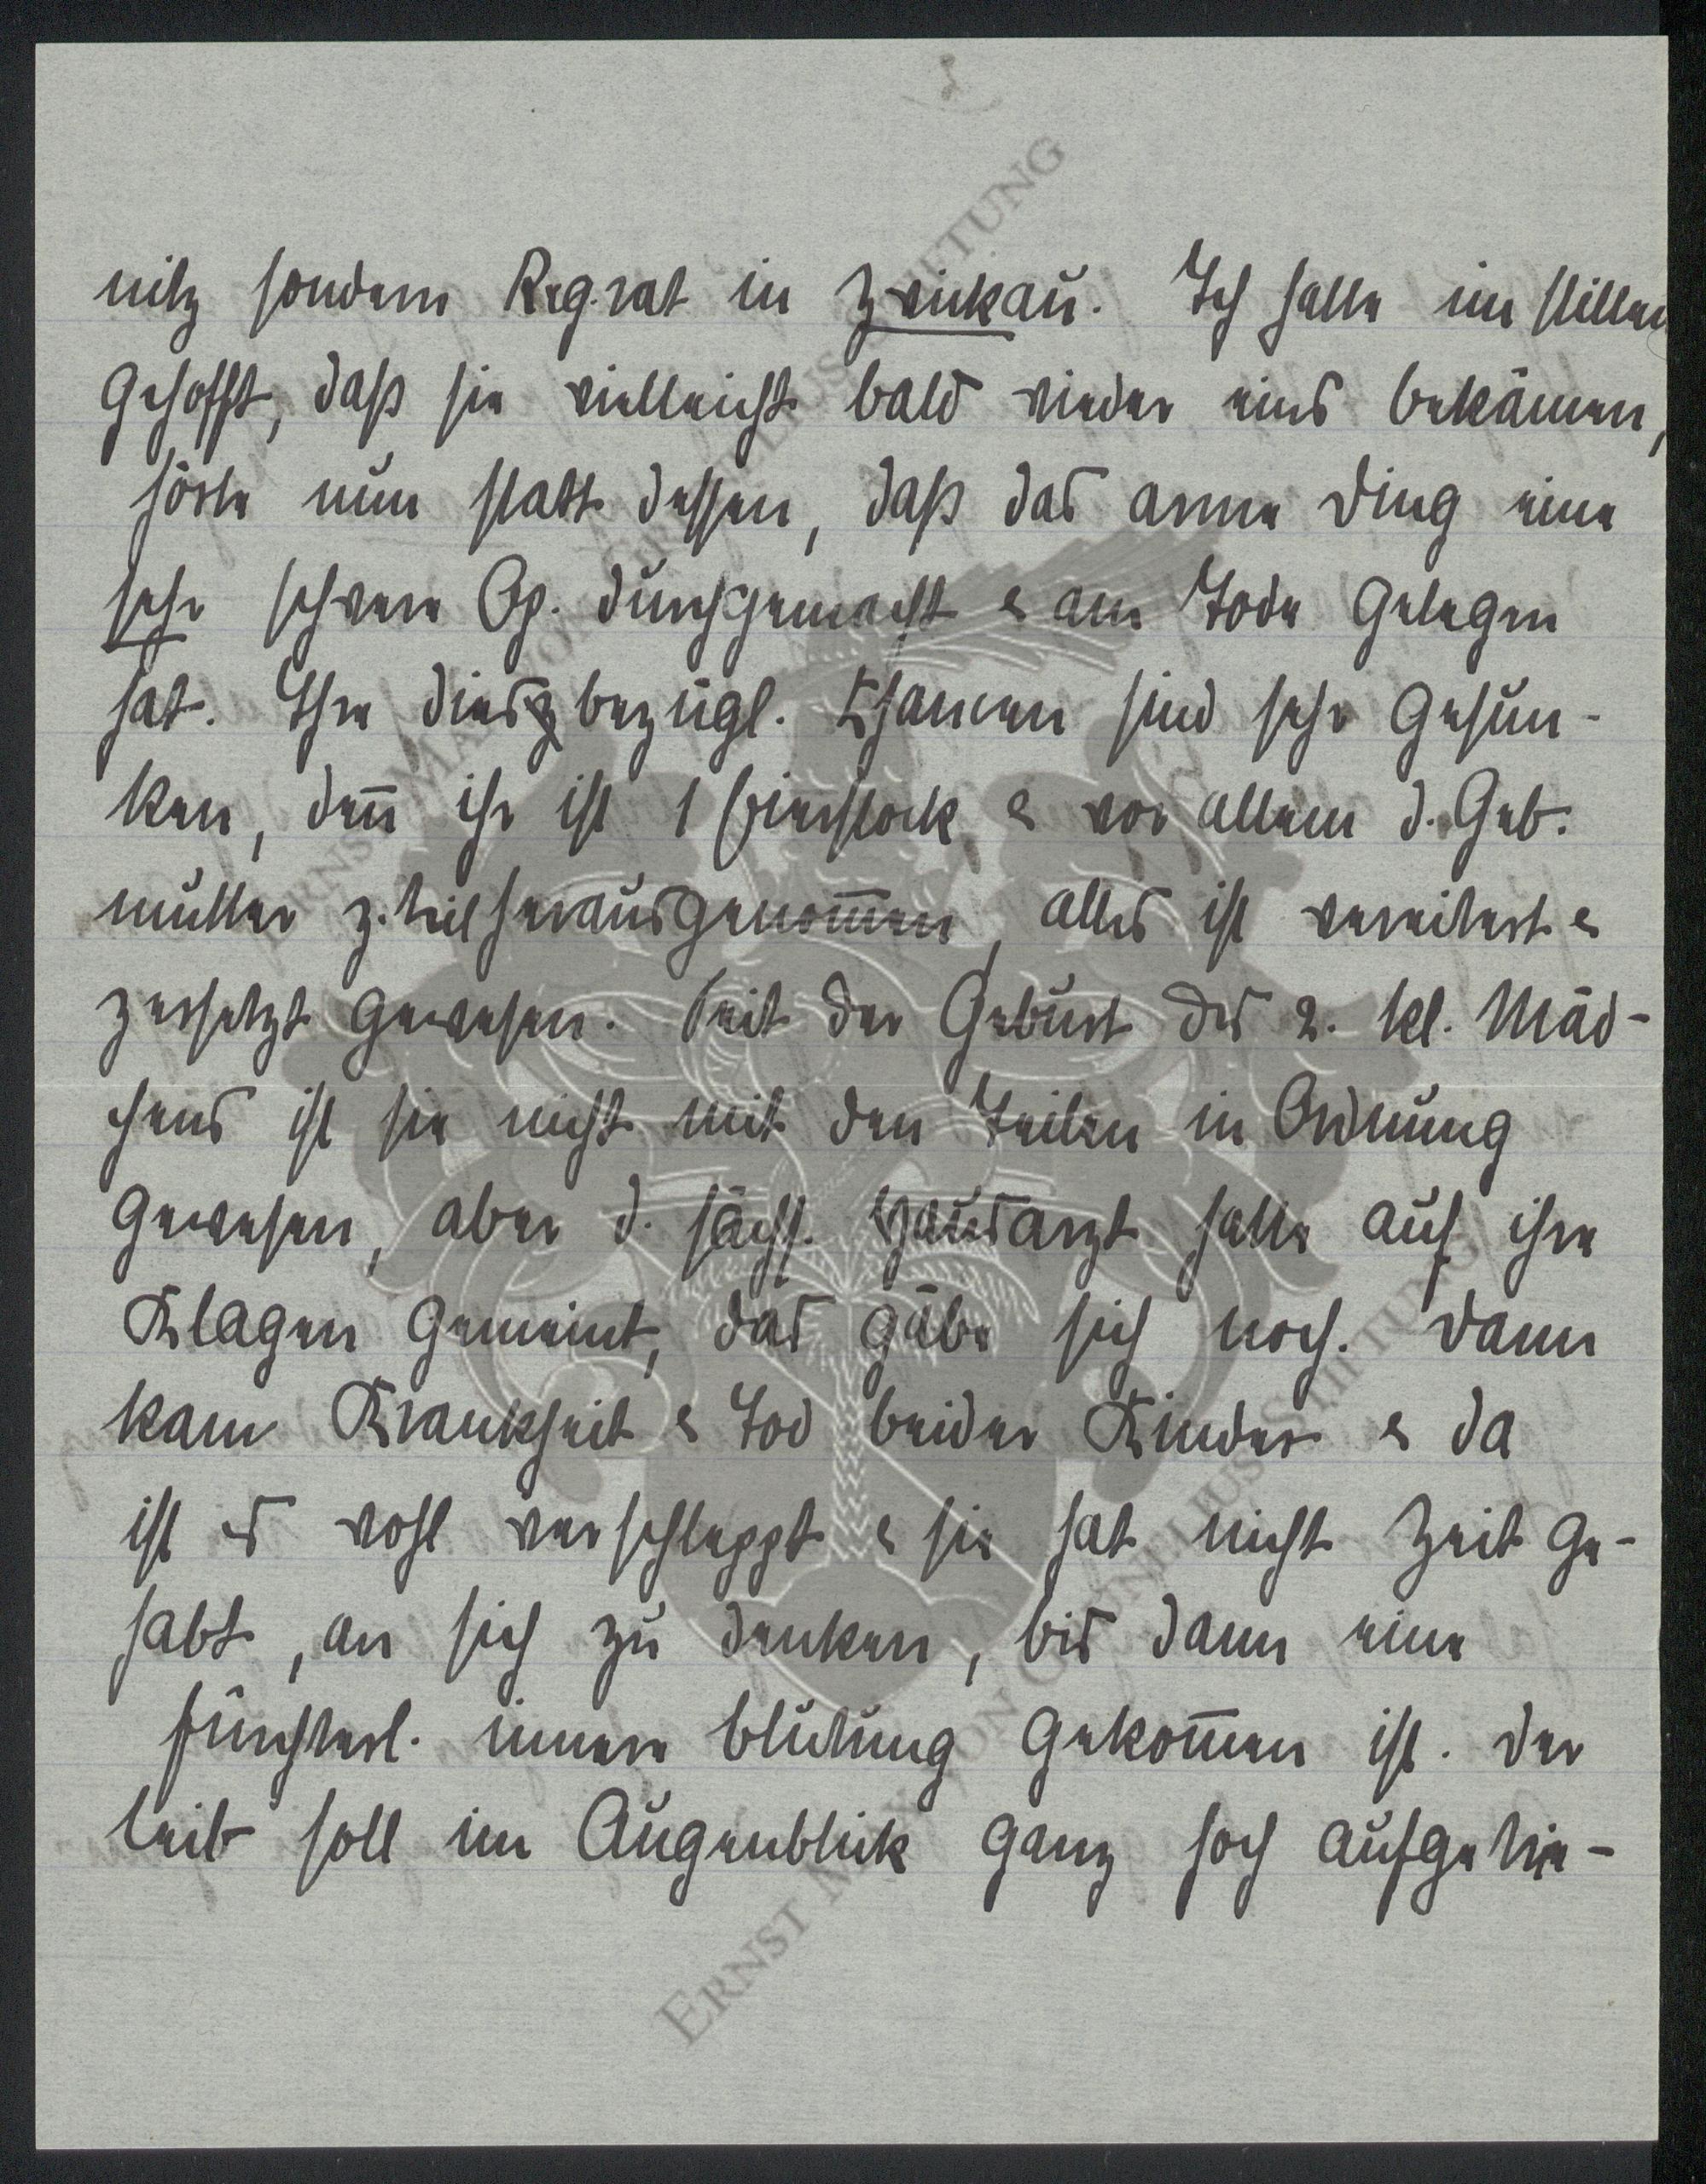 nitz sondern Reg.rat in Zwickau. Ich hatte im Stillen
gehofft, daß sie vielleicht bald wieder eins bekämen,
hörte nun statt dessen, daß das arme Ding eine
sehr schwere Op. durchgemacht & am Tode gelegen
hat. Ihre diesbezügl. Chancen sind sehr gesun-
ken, deñ ihr ist 1 Eierstock & vor allem d. Geb.
mutter z. teil herausgenom̄en, alles ist vereitert &
zersetzt gewesen. Seit der Geburt des 2. kl. Mäd-
chens ist sie nicht mit den Teilen in Ordnung
gewesen, aber d. sächs. Hausarzt hatte auf ihre
Klagen gemeint, das gäbe sich noch. Dann
kam Krankheit & Tod beider Kinder & da
ist es wohl verschleppt & sie hat nicht Zeit ge-
habt, an sich zu denken, bis dann eine
fürchterl. innere Blutung gekom̄en ist. Der
Leib soll im Augenblick ganz hoch aufgetrie-
ERNST MAX VON GRUNELIUS STIFTUNG
ERNST MAX VON GRUNELIUS STIFTUNG